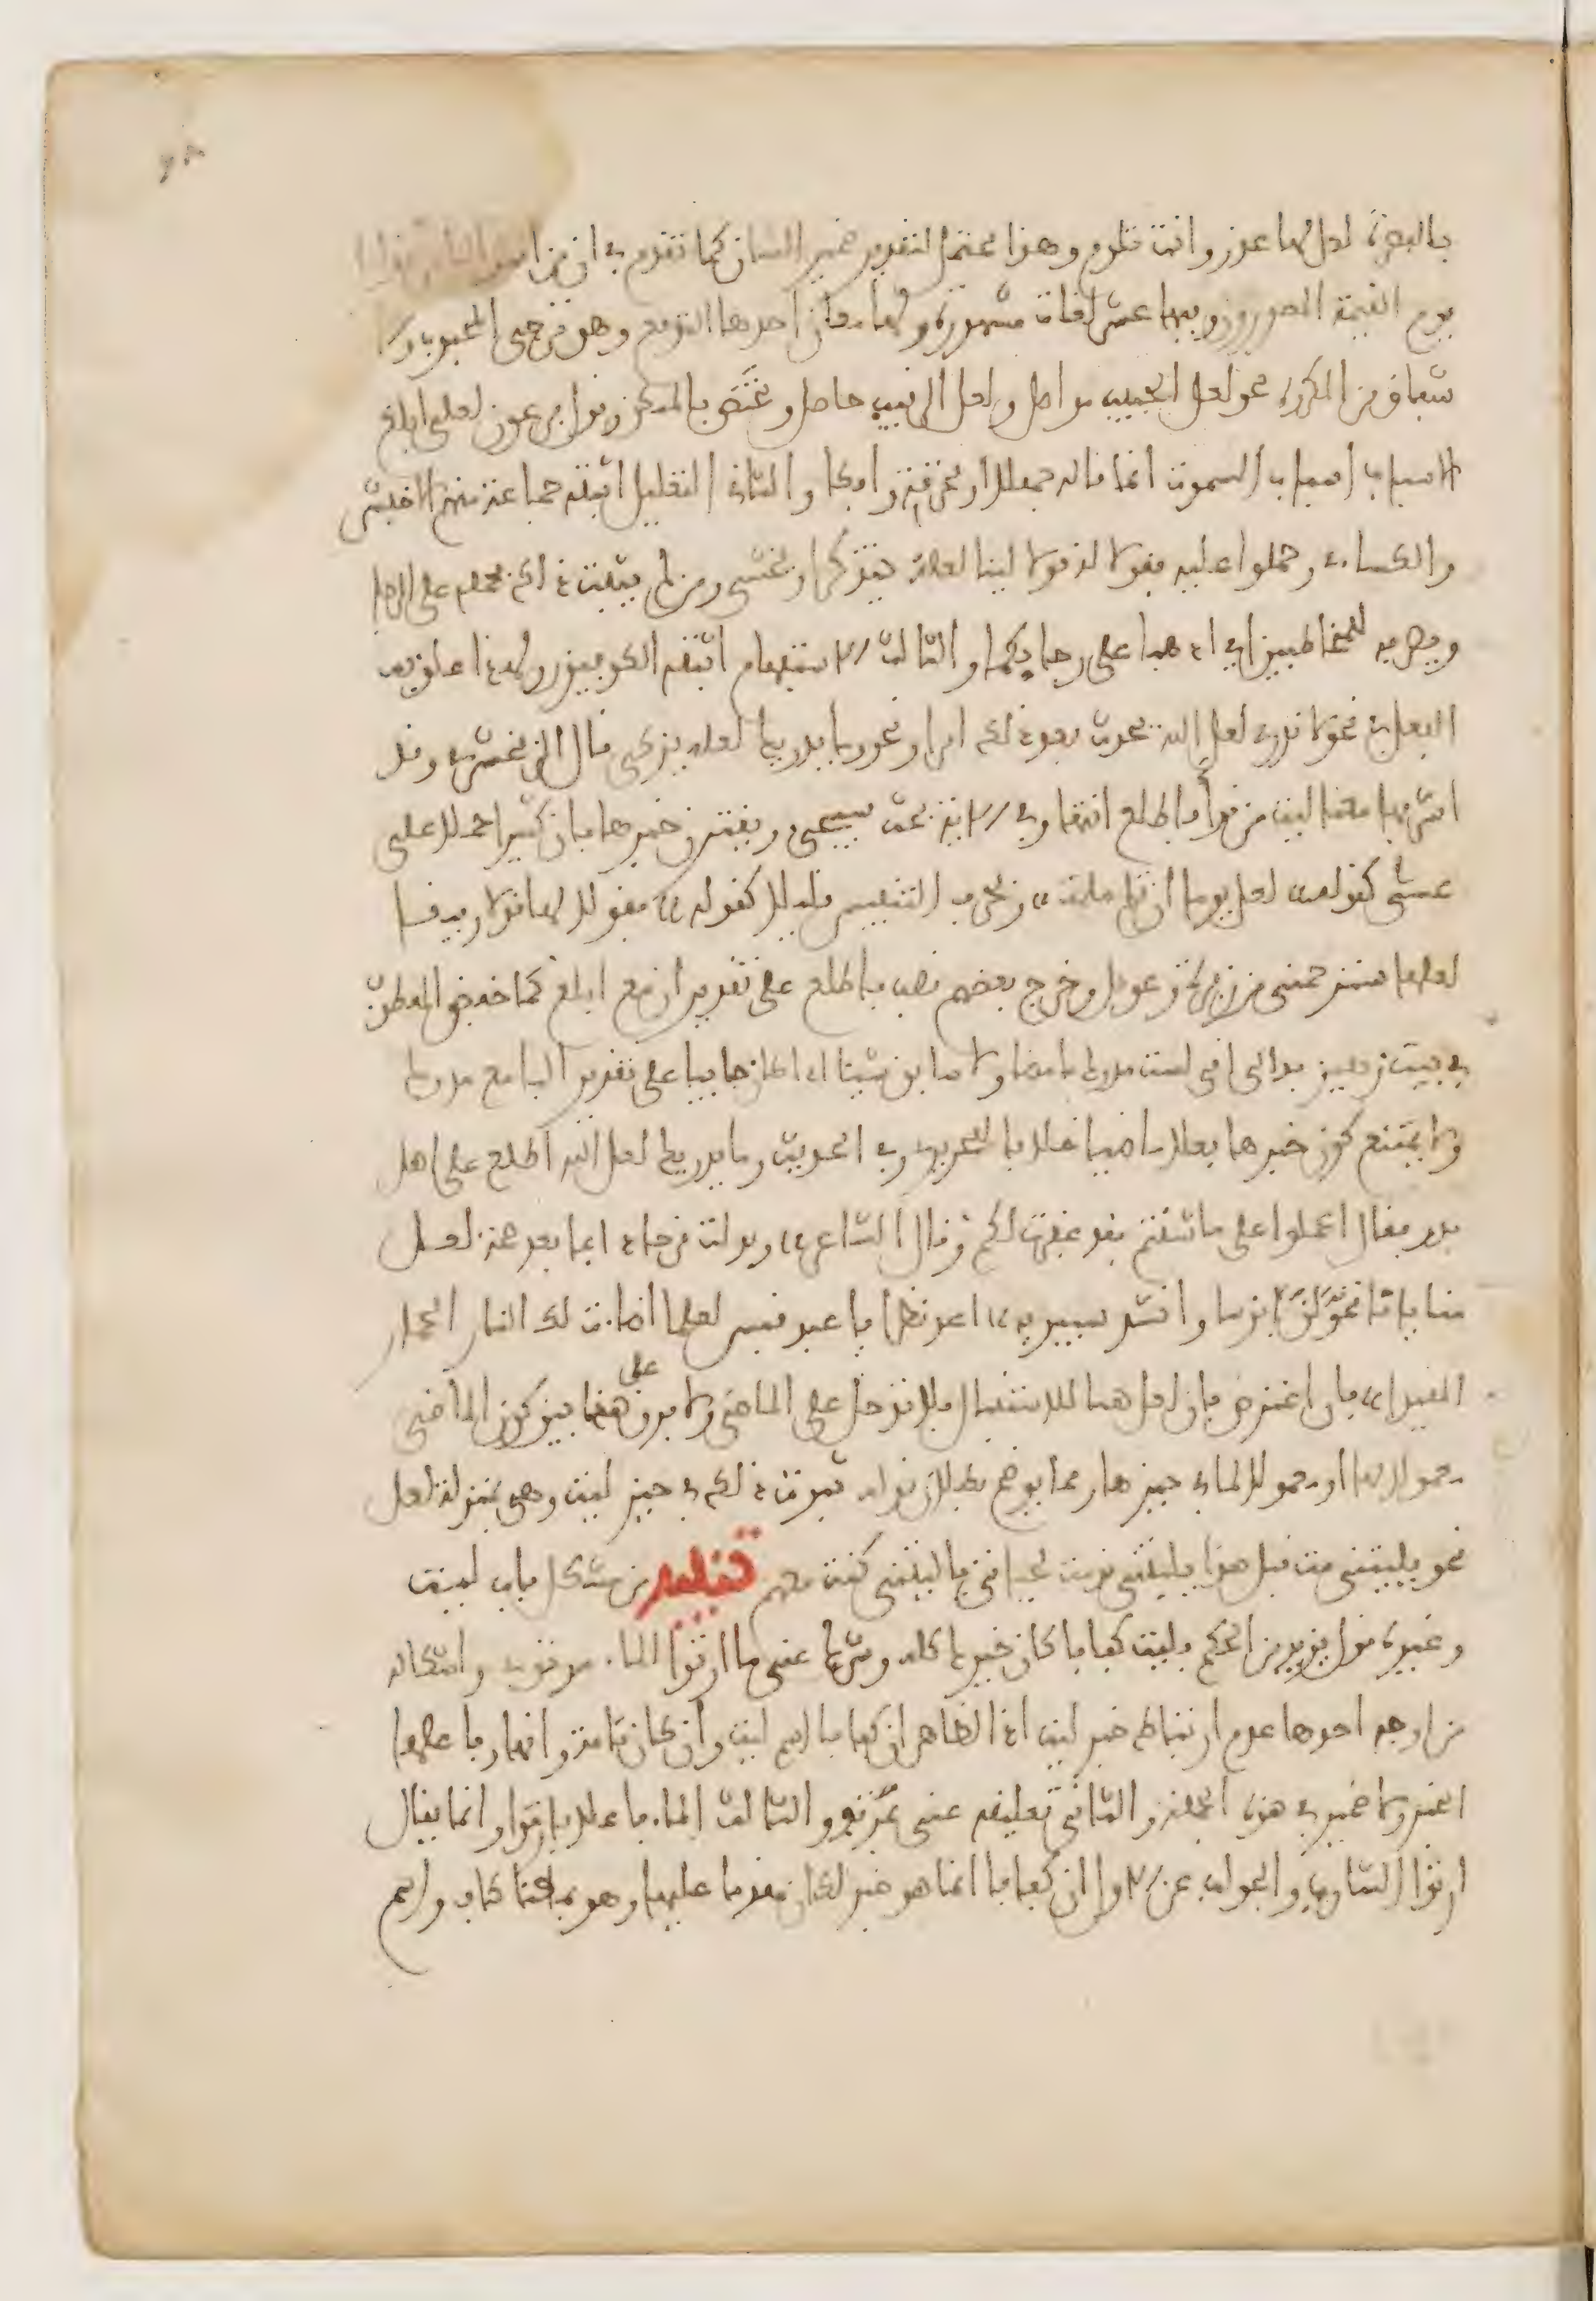 بالبصرة لعل لها عذر وانت تلوم وهذا محتمل لتقدير ضمير الشان كما تقدم في ان من اشد الناس عذابا
يوم القيمة المصورون وفيها عشر لغات مشهورة ولها معان احدها التوقع وهو ترجي المحبوب والا
شفاق من المكروه نحو لعل الحبيب مواصل ولعل الرقيب حاصل وتختص بالممكن وقول فرعون لعلي ابلغ
الاسباب اسباب السموت انما قاله جهلا او مخرقة وافكا والثاني التعليل اثبته جماعة منهم الاخفش
والكساءي وحملوا عليه فقولا له قولا لينا لعله يتذكر او يخشى ومن لم يثبت ذلك يحمله على الرجا
ويصرفه للمخاطبين اي اذهبا على رجايكما والثالث الاستفهام اثبته الكوفيون ولهذا علق بها
الفعل في نحو لا تدري لعل الله يحدث بعد ذلك امرا ونحو وما يدريك لعله يزكى قال الزمخشري وقد
اشربها معنا ليت من قرأ فاطلع انتها وفي الاية بحث سيجيء ويقترن خبرها بان كثيرا حملا على
عسى كقوله لعل يوما ان تلم ملمة وبحرف التنفيس قليلا كقوله فقولا لها قولا رفيقا
لعلها سترحمني من زفرة وعويل وخرج بعضهم نصب فاطلع على تقدير ان مع ابلغ كما خفض المعطوف
في بيت زهير بدا لي اني لست مدرك ما مضا ولا سابق شيئا اذا كان جاييا على تقدير البا مع مدرك
ولا يمتنع كون خبرها فعلا ماضيا خلافا للحريري وفي الحديث وما يدريك لعل الله اطلع على اهل
بدر فقال اعملوا على ما شئتم فقد غفرت لكم وقال الشاعر وبدلت قرحا داميا بعد صحة لعل
منايانا تحولن ابؤسا وانشد سيبويه اعد نظرا يا عبد قيس لعلما اضاءت لك النار الحمار
المقيدا فان اعترض بان لعل هنا للاستقبال فلا تدخل على الماضي ولا فرق على هذا بين كون الماضي
معمولا لها او معمولا لما في حيزها ومما يوضح بطلان قوله ثبوت ذلك في حيز ليت وهي بمنزلة لعل
نحو يليتني مت قبل هذا يليتني قدمت لحياتي يا ليتني كنت معهم تنبيه من مشكل باب ليت
وغيره قول يزيد بن الحكم فليت كفافا كان خيرك كله وشرك عني ما ارتوا الماء مرتوي واشكاله
من اوجه احدها عدم ارتباط خبر ليت اذ الظاهر ان كفافا اسم ليت وان كان تامة وانها وفاعلها
الخبر ولا ضمير في هذه الجملة والثاني تعليقه عني بمرتوي والثالث الماء فاعلا بارتوا وانما يقال
ارتوا الشارب والجواب عن الاول ان كفافا انما هو خبر لكان مقدما عليها وهو بمعنا كاف واسم